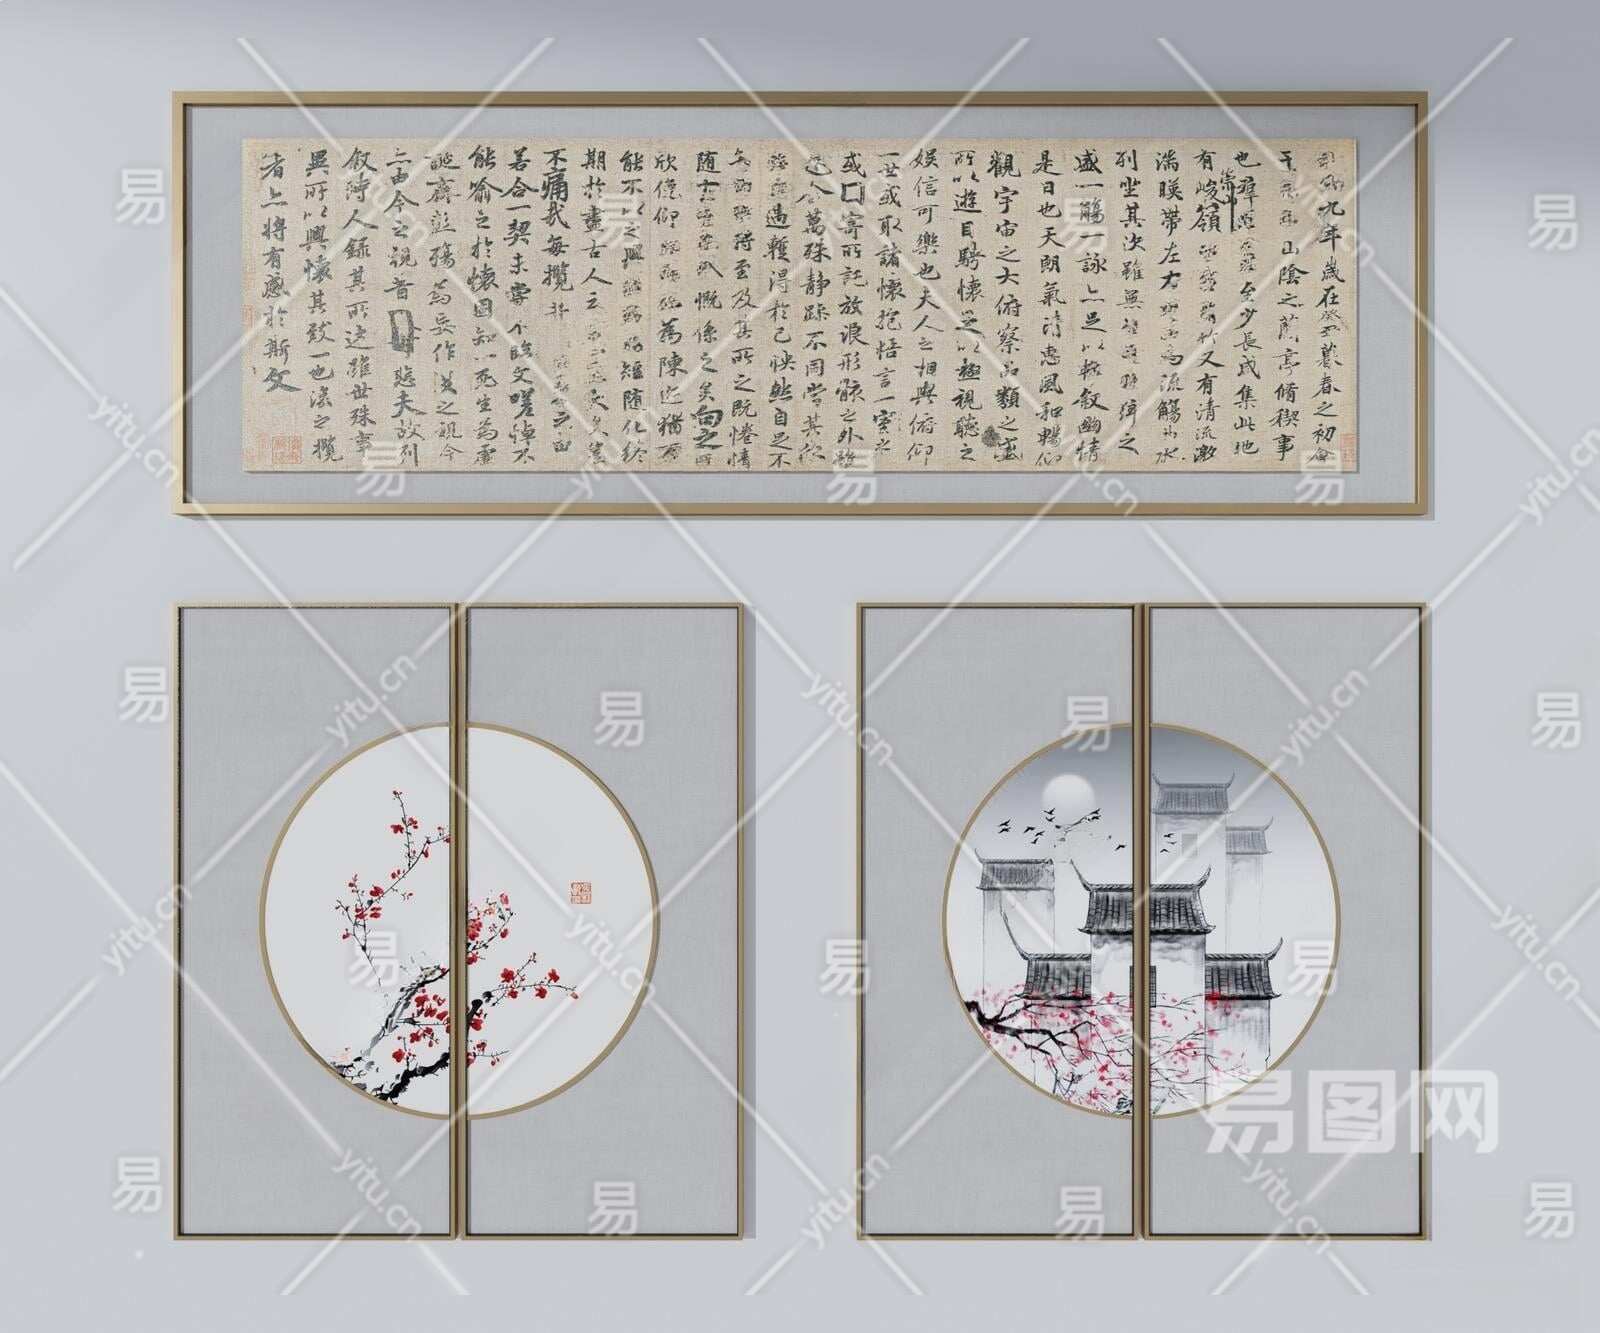 九年歲在癸丑暮春之初會
山陰之蘭亭脩禊事
也群賢至少長咸集此地
有峻領又有清流激
湍暎帶左右為流觴曲水
列坐其次雖無之
盛一觴一詠亦足以暢敘幽情
是日也天朗氣清惠風和暢仰
觀宇宙之大俯察品類之盛
所以遊目騁懷足以極視聽之
娛信可樂也夫人之相與俯仰
一世或取諸懷抱悟言一室之
或因寄所託放浪形骸之外雖
趣舍萬殊靜躁不同當其欣
所遇暫得於己快然自足不
將至及其所之既惓情
隨事遷感慨係之矣向之所
欣俛仰以為陳迹猶不
能不以之興懷短隨化終
期於盡古人云大矣豈
不痛哉每攬昔之由
若合一契未嘗不臨文嗟悼不
能喻之於懷固知一死生為虛
誕齊彭殤為妄作後之視今
亦由今之視昔悲夫故列
敘時人錄其所述雖世殊事
異所以興懷其致一也後之攬
者亦將有感於斯文
易图网
易
yitu.cn